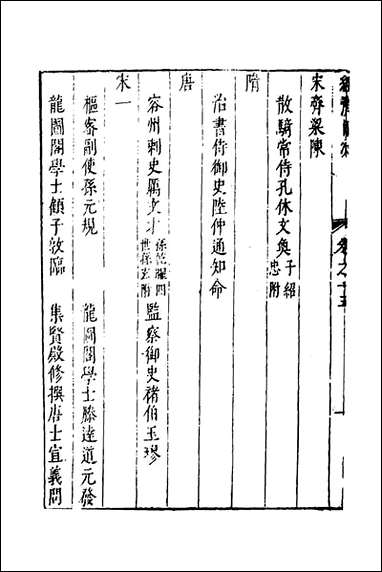 卷之十五
宋齊梁陳
散騎常侍孔休文奐 子紹忠附
隋
治書侍御史陸仲通知命
唐
容州刺史厲文才 孫乾四世孫玄附 監察御史褚伯玉璆
宋一
樞密副使孫元規 龍圖閣學士滕達道元發
龍圖閣學士顧子敦臨 集賢殿修撰唐士宣義問